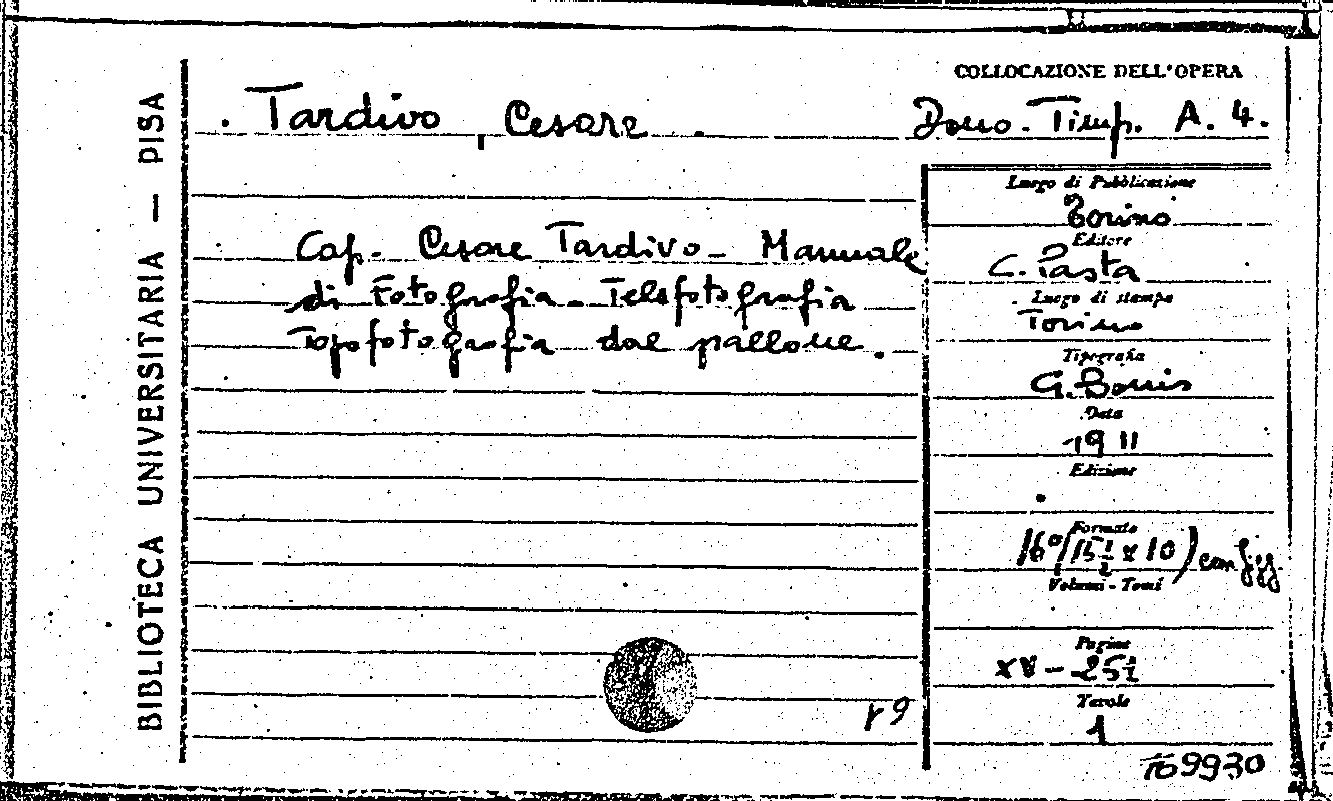 BIBLIOTECA UNIVERSITARIA — PISA
COLLOCAZIONE DELL'OPERA
. Tardivo, Cesare .
Dono. Timp. A. 4.
Cap. Cesare Tardivo - Manuale
di Fotografia - Telefotografia
Topofotografia dal pallone.
Luogo di Pubblicazione
Torino
Editore
C. Pasta
Luogo di stampa
Torino
Tipografia
G. Bonis
Data
1911
Edizione
Formato
16° (15 1/2 x 10) con figg
Volumi - Tomi
Pagine
XV - 252
Tavole
1